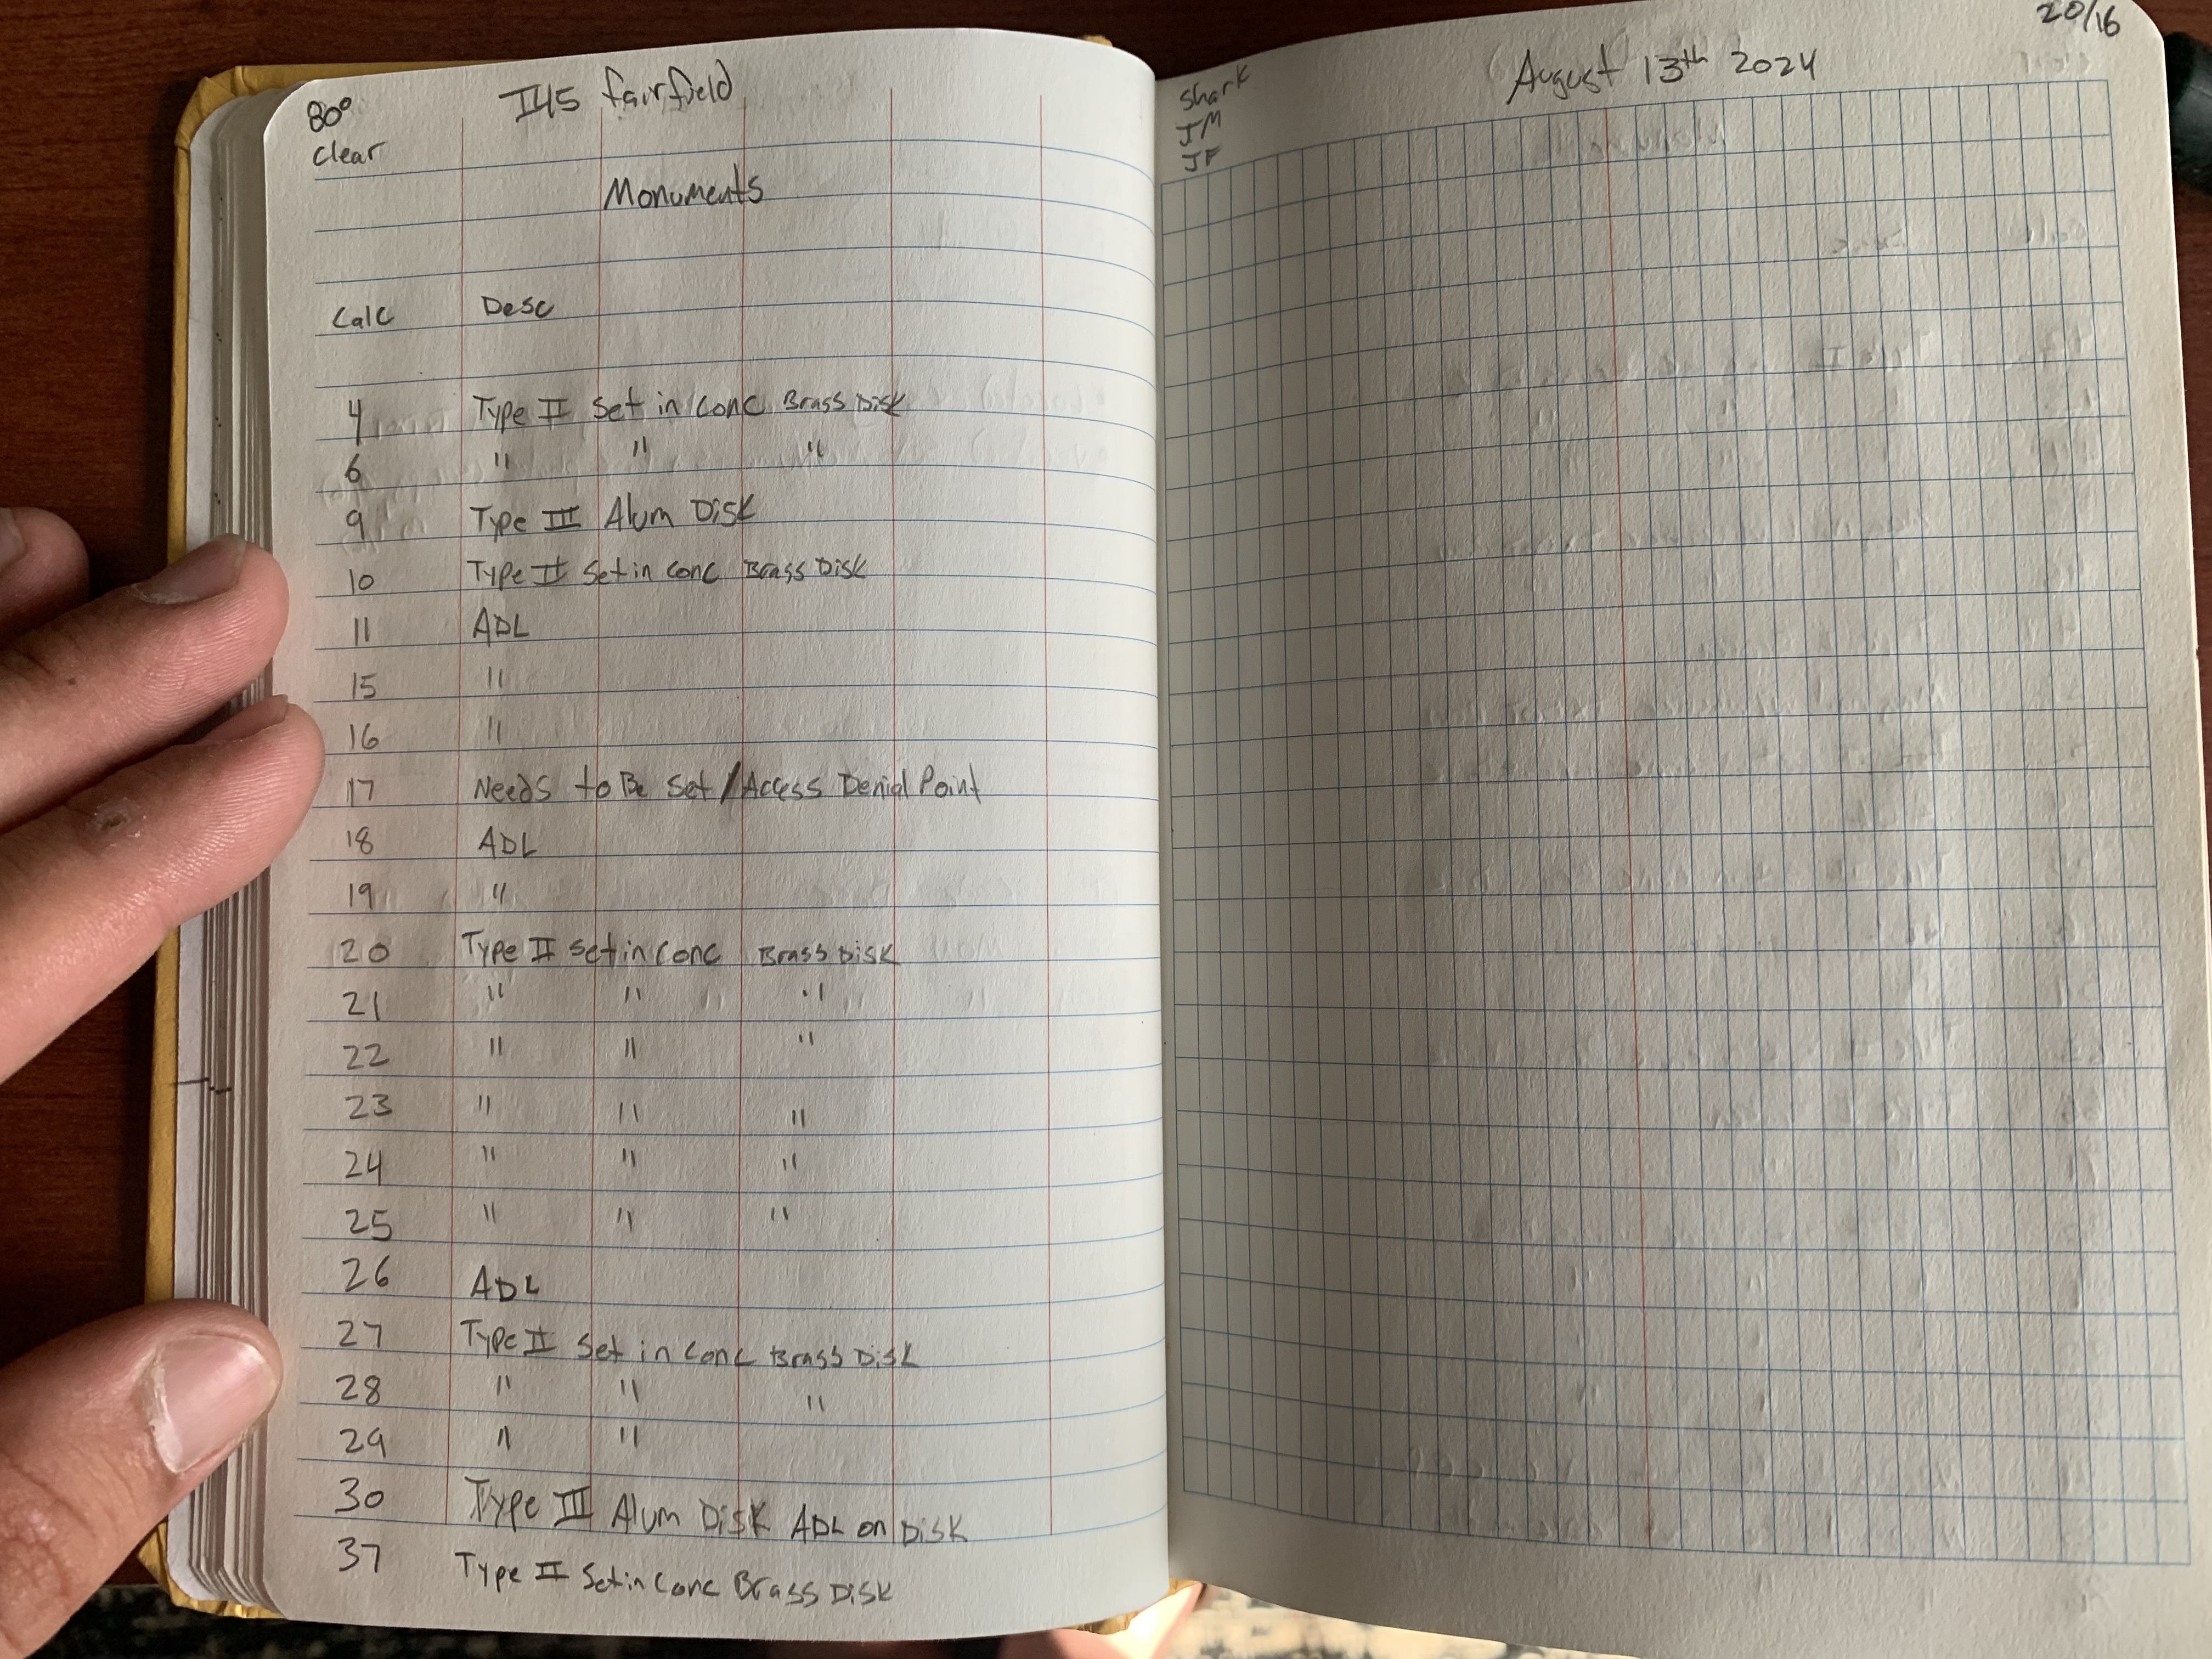 80° I45 fairfield
Clear
Monuments
Calc Desc
4 Type II Set in Conc Brass Disk
6 " " "
9 Type III Alum Disk
10 Type II Set in Conc Brass Disk
11 ADL
15 "
16 "
17 Needs to Be Set / Access Denial Point
18 ADL
19 "
20 Type II Set in Conc Brass Disk
21 " " "
22 " " "
23 " " "
24 " " "
25 " " "
26 ADL
27 Type II Set in Conc Brass Disk
28 " " "
29 " "
30 Type III Alum Disk ADL on Disk
37 Type II Set in Conc Brass Disk
20/16
Shark August 13th 2024
JM
JF